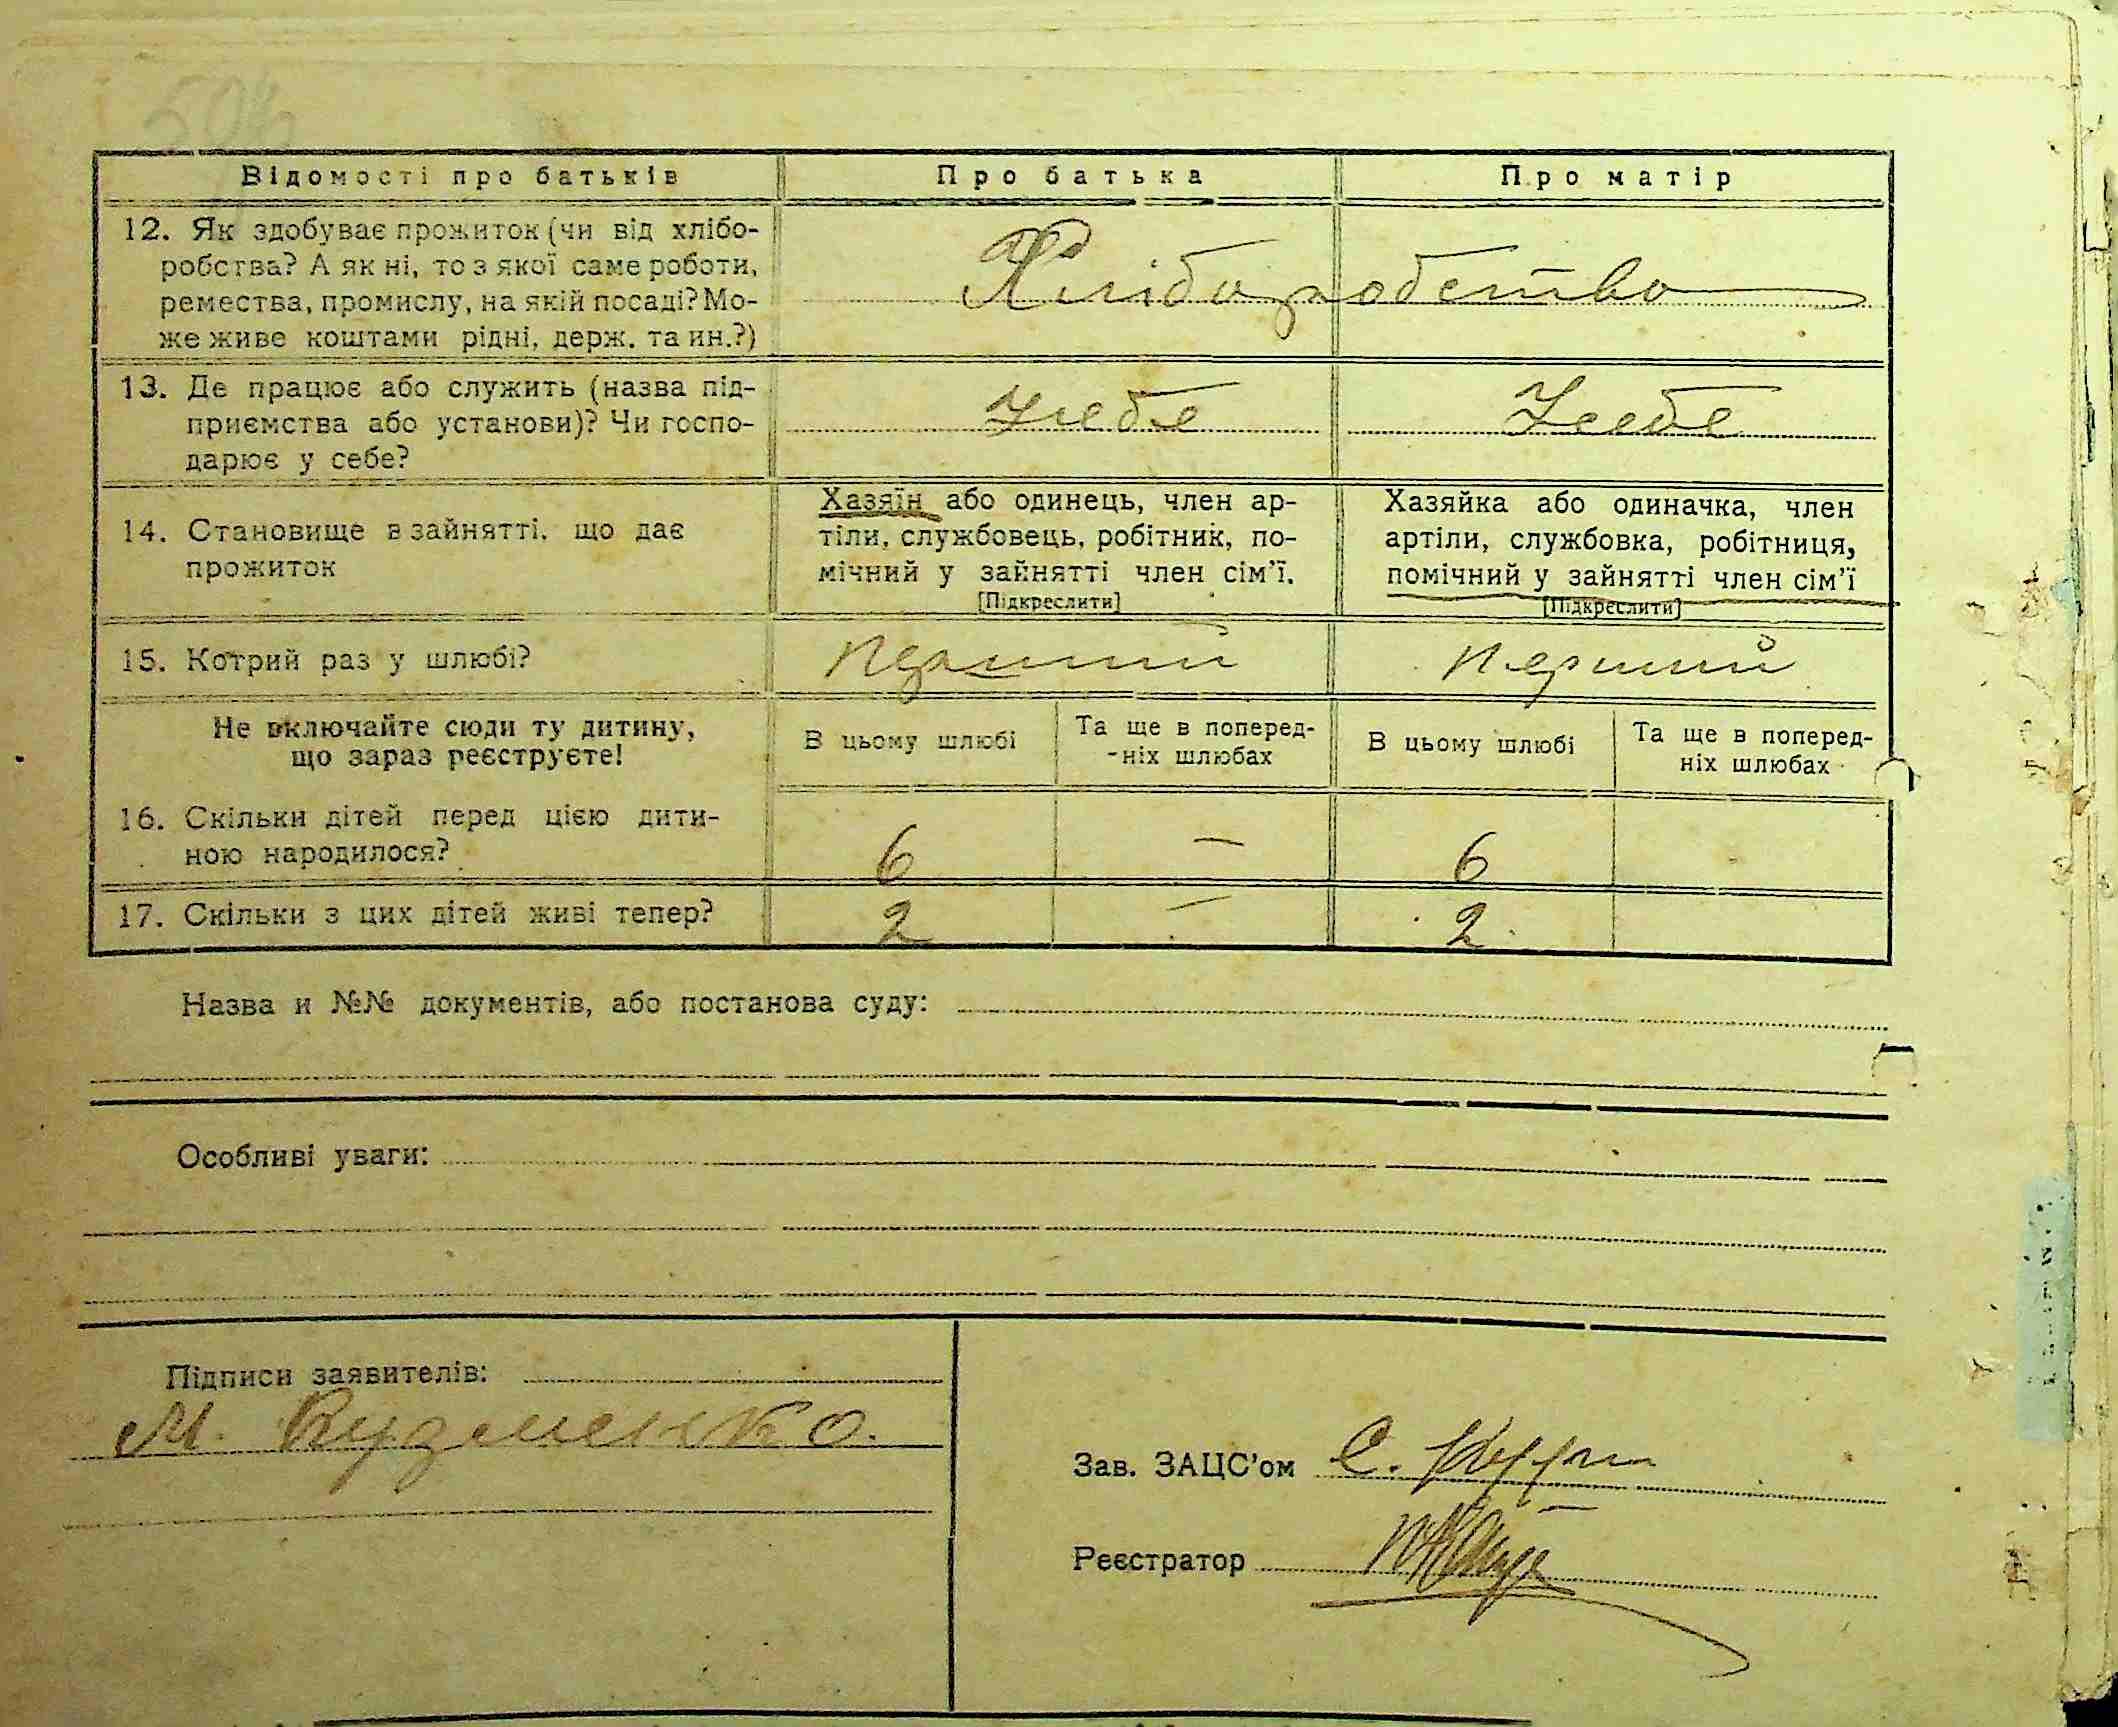 Відомості про батьків Про батька Про матір
12. Як здобуває прожиток (чи від хлібо-
робства? А як ні, то з якої саме роботи,
ремества, промислу, на якій посаді? Мо-
же живе коштами рідні, держ. та ин.?)
Хліборобство
13. Де працює або служить (назва під-
приємства або установи)? Чи госпо-
дарює у себе?
У себе У себе
14. Становище в зайнятті, що дає
прожиток
Хазяїн або одинець, член ар-
тіли, службовець, робітник, по-
мічний у зайнятті член сім'ї.
[Підкреслити]
Хазяйка або одиначка, член
артіли, службовка, робітниця,
помічний у зайнятті член сім'ї
[Підкреслити]
15. Котрий раз у шлюбі? Перший Перший
Не включайте сюди ту дитину,
що зараз реєструєте!
В цьому шлюбі
Та ще в поперед-
-ніх шлюбах
В цьому шлюбі
Та ще в поперед-
ніх шлюбах
16. Скільки дітей перед цією дити-
ною народилося?
6 — 6
17. Скільки з цих дітей живі тепер? 2 — 2
Назва и №№ документів, або постанова суду:
Особливі уваги:
Підписи заявителів:
М. Кузменко.
Зав. ЗАЦС'ом С.
Реєстратор